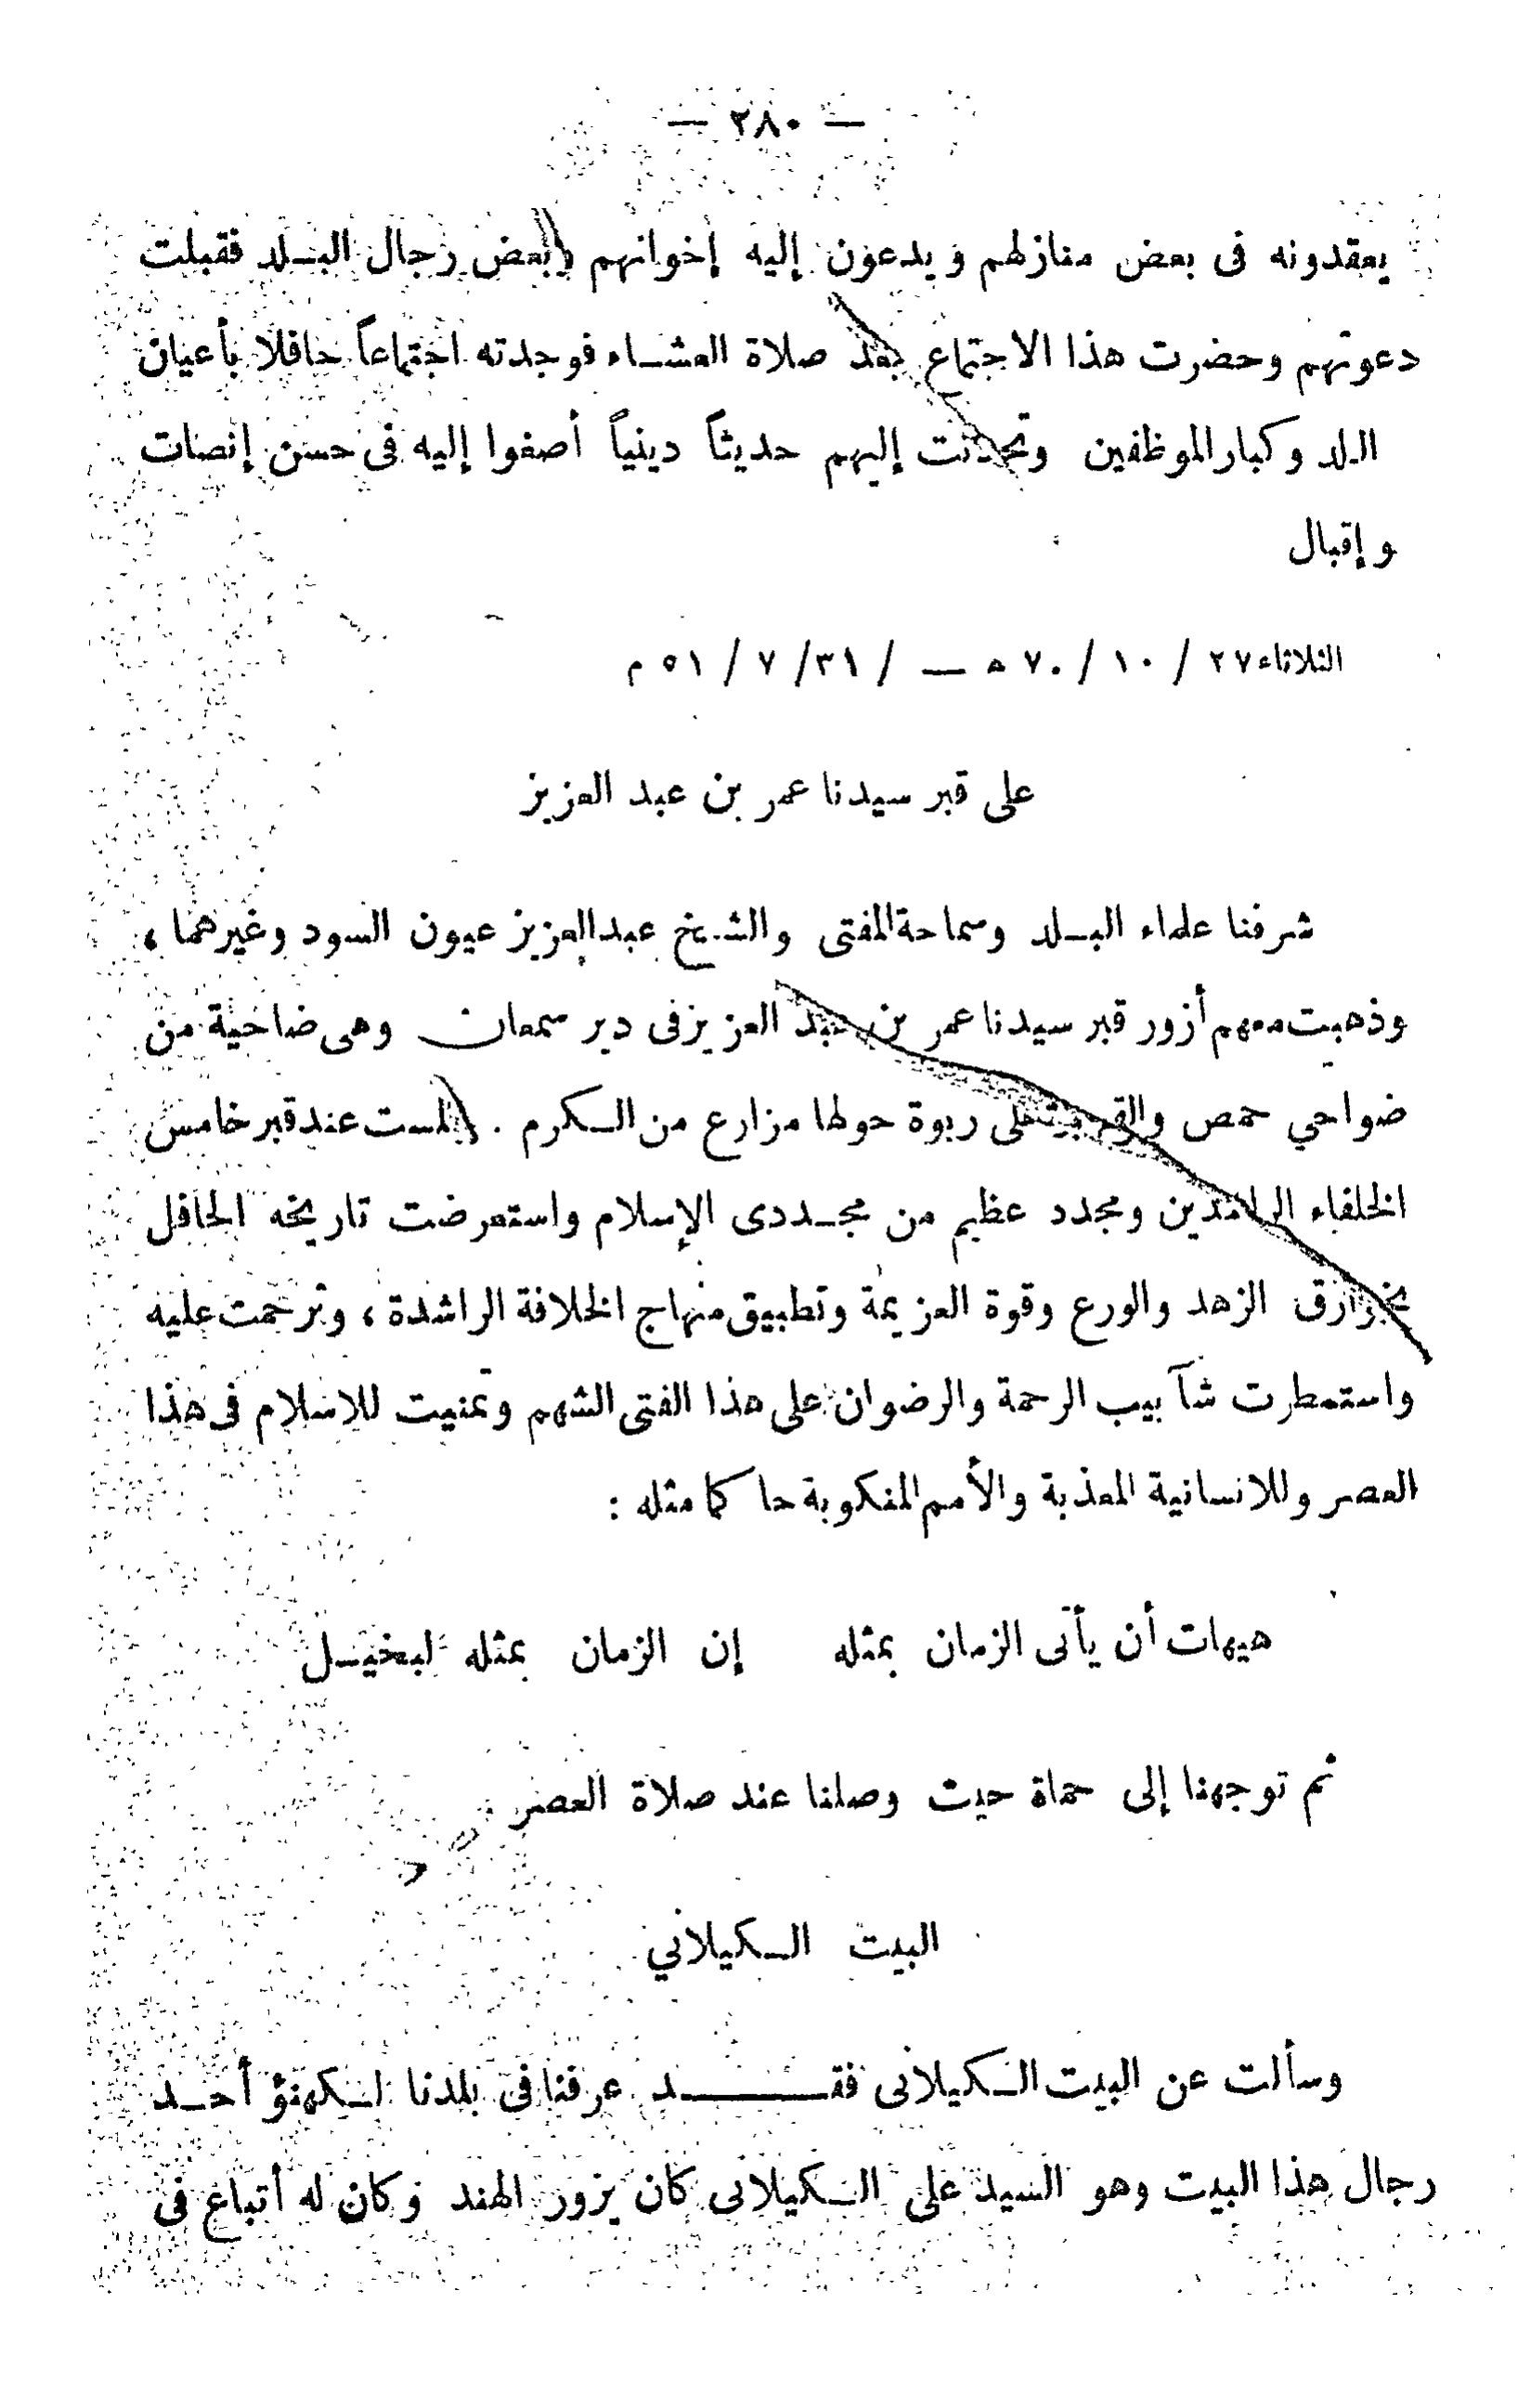 — ٢٨٠ —
يعقدونه فى بعض منازلهم ويدعون إليه إخوانهم وبعض رجال البلد فقبلت
دعوتهم وحضرت هذا الاجتماع بعد صلاة العشاء فوجدته اجتماعاً حافلا بأعيان
البلد وكبار الموظفين وتحدثت إليهم حديثاً دينياً أصغوا إليه فى حسن إنصات
وإقبال
الثلاثاء ٢٧ / ١٠ / ٧٠ هـ — / ٣١/ ٧ / ٥١ م
على قبر سيدنا عمر بن عبد العزيز
شرفنا علماء البلد وسماحة المفتى والشيخ عبد العزيز عيون السود وغيرهما ،
وذهبت معهم أزور قبر سيدنا عمر بن عبد العزيز فى دير سمعان وهى ضاحية من
ضواحي حمص والقبر على ربوة حولها مزارع من الكرم . جلست عند قبر خامس
الخلفاء الراشدين ومجدد عظيم من مجددى الإسلام واستعرضت تاريخه الحافل
بخوارق الزهد والورع وقوة العزيمة وتطبيق منهاج الخلافة الراشدة ، وترحمت عليه
واستمطرت شآبيب الرحمة والرضوان على هذا الفتى الشهم وتمنيت للاسلام فى هذا
العصر وللانسانية المعذبة والأمم المنكوبة حاكما مثله :
هيهات أن يأتى الزمان بمثله إن الزمان بمثله لبخيل
ثم توجهنا إلى حماة حيث وصلنا عند صلاة العصر
البيت الكيلاني
وسألت عن البيت الكيلانى فقد عرفنا فى بلدنا لكهنؤ أحد
رجال هذا البيت وهو السيد على الكيلانى كان يزور الهند وكان له أتباع فى